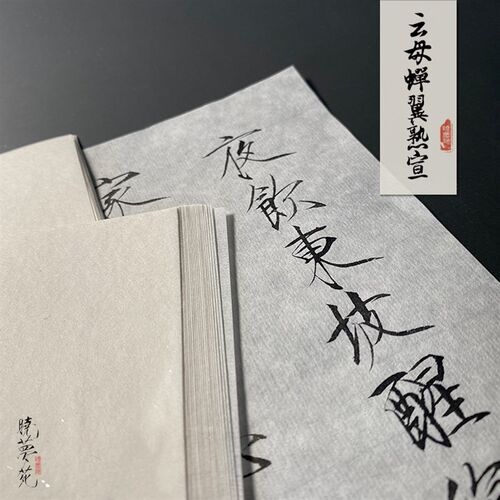 云母蝉翼熟宣
夜飲東坡醒
家
晓夢苑